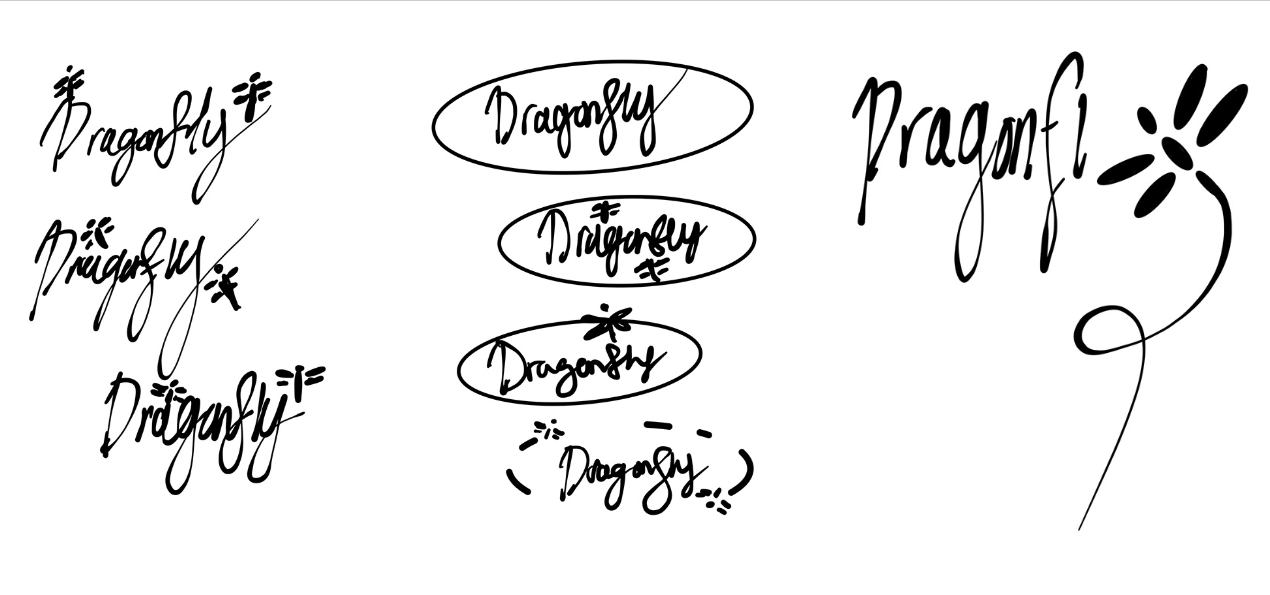 Dragonfly
Dragonfly
Dragonfly
Dragonfly
Dragonfly
Dragonfly
Dragonfly
Dragonfl